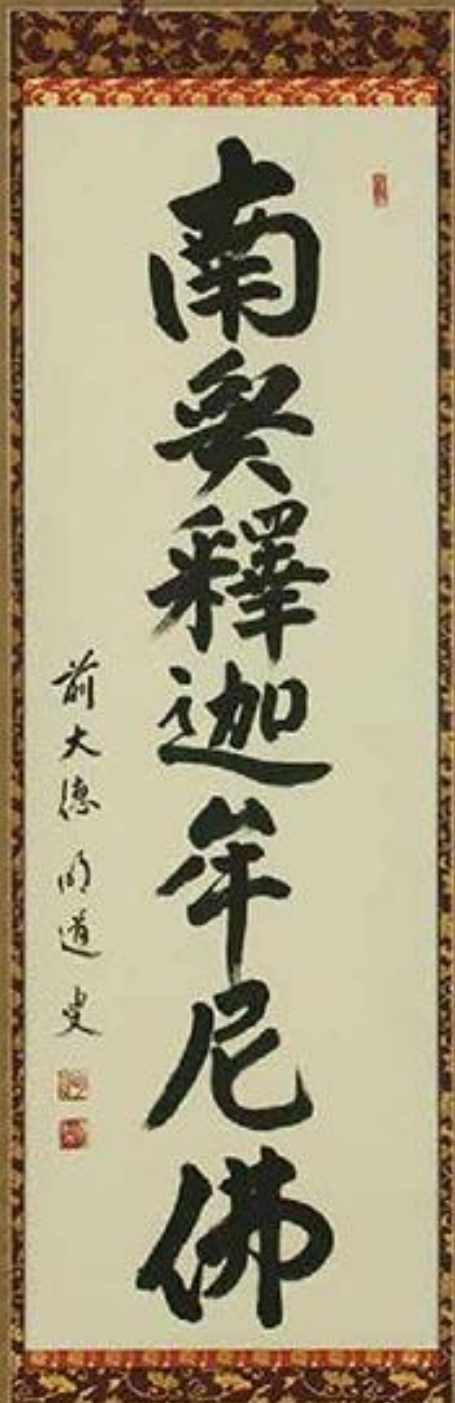 南無釋迦牟尼佛
前大徳 明道 叟